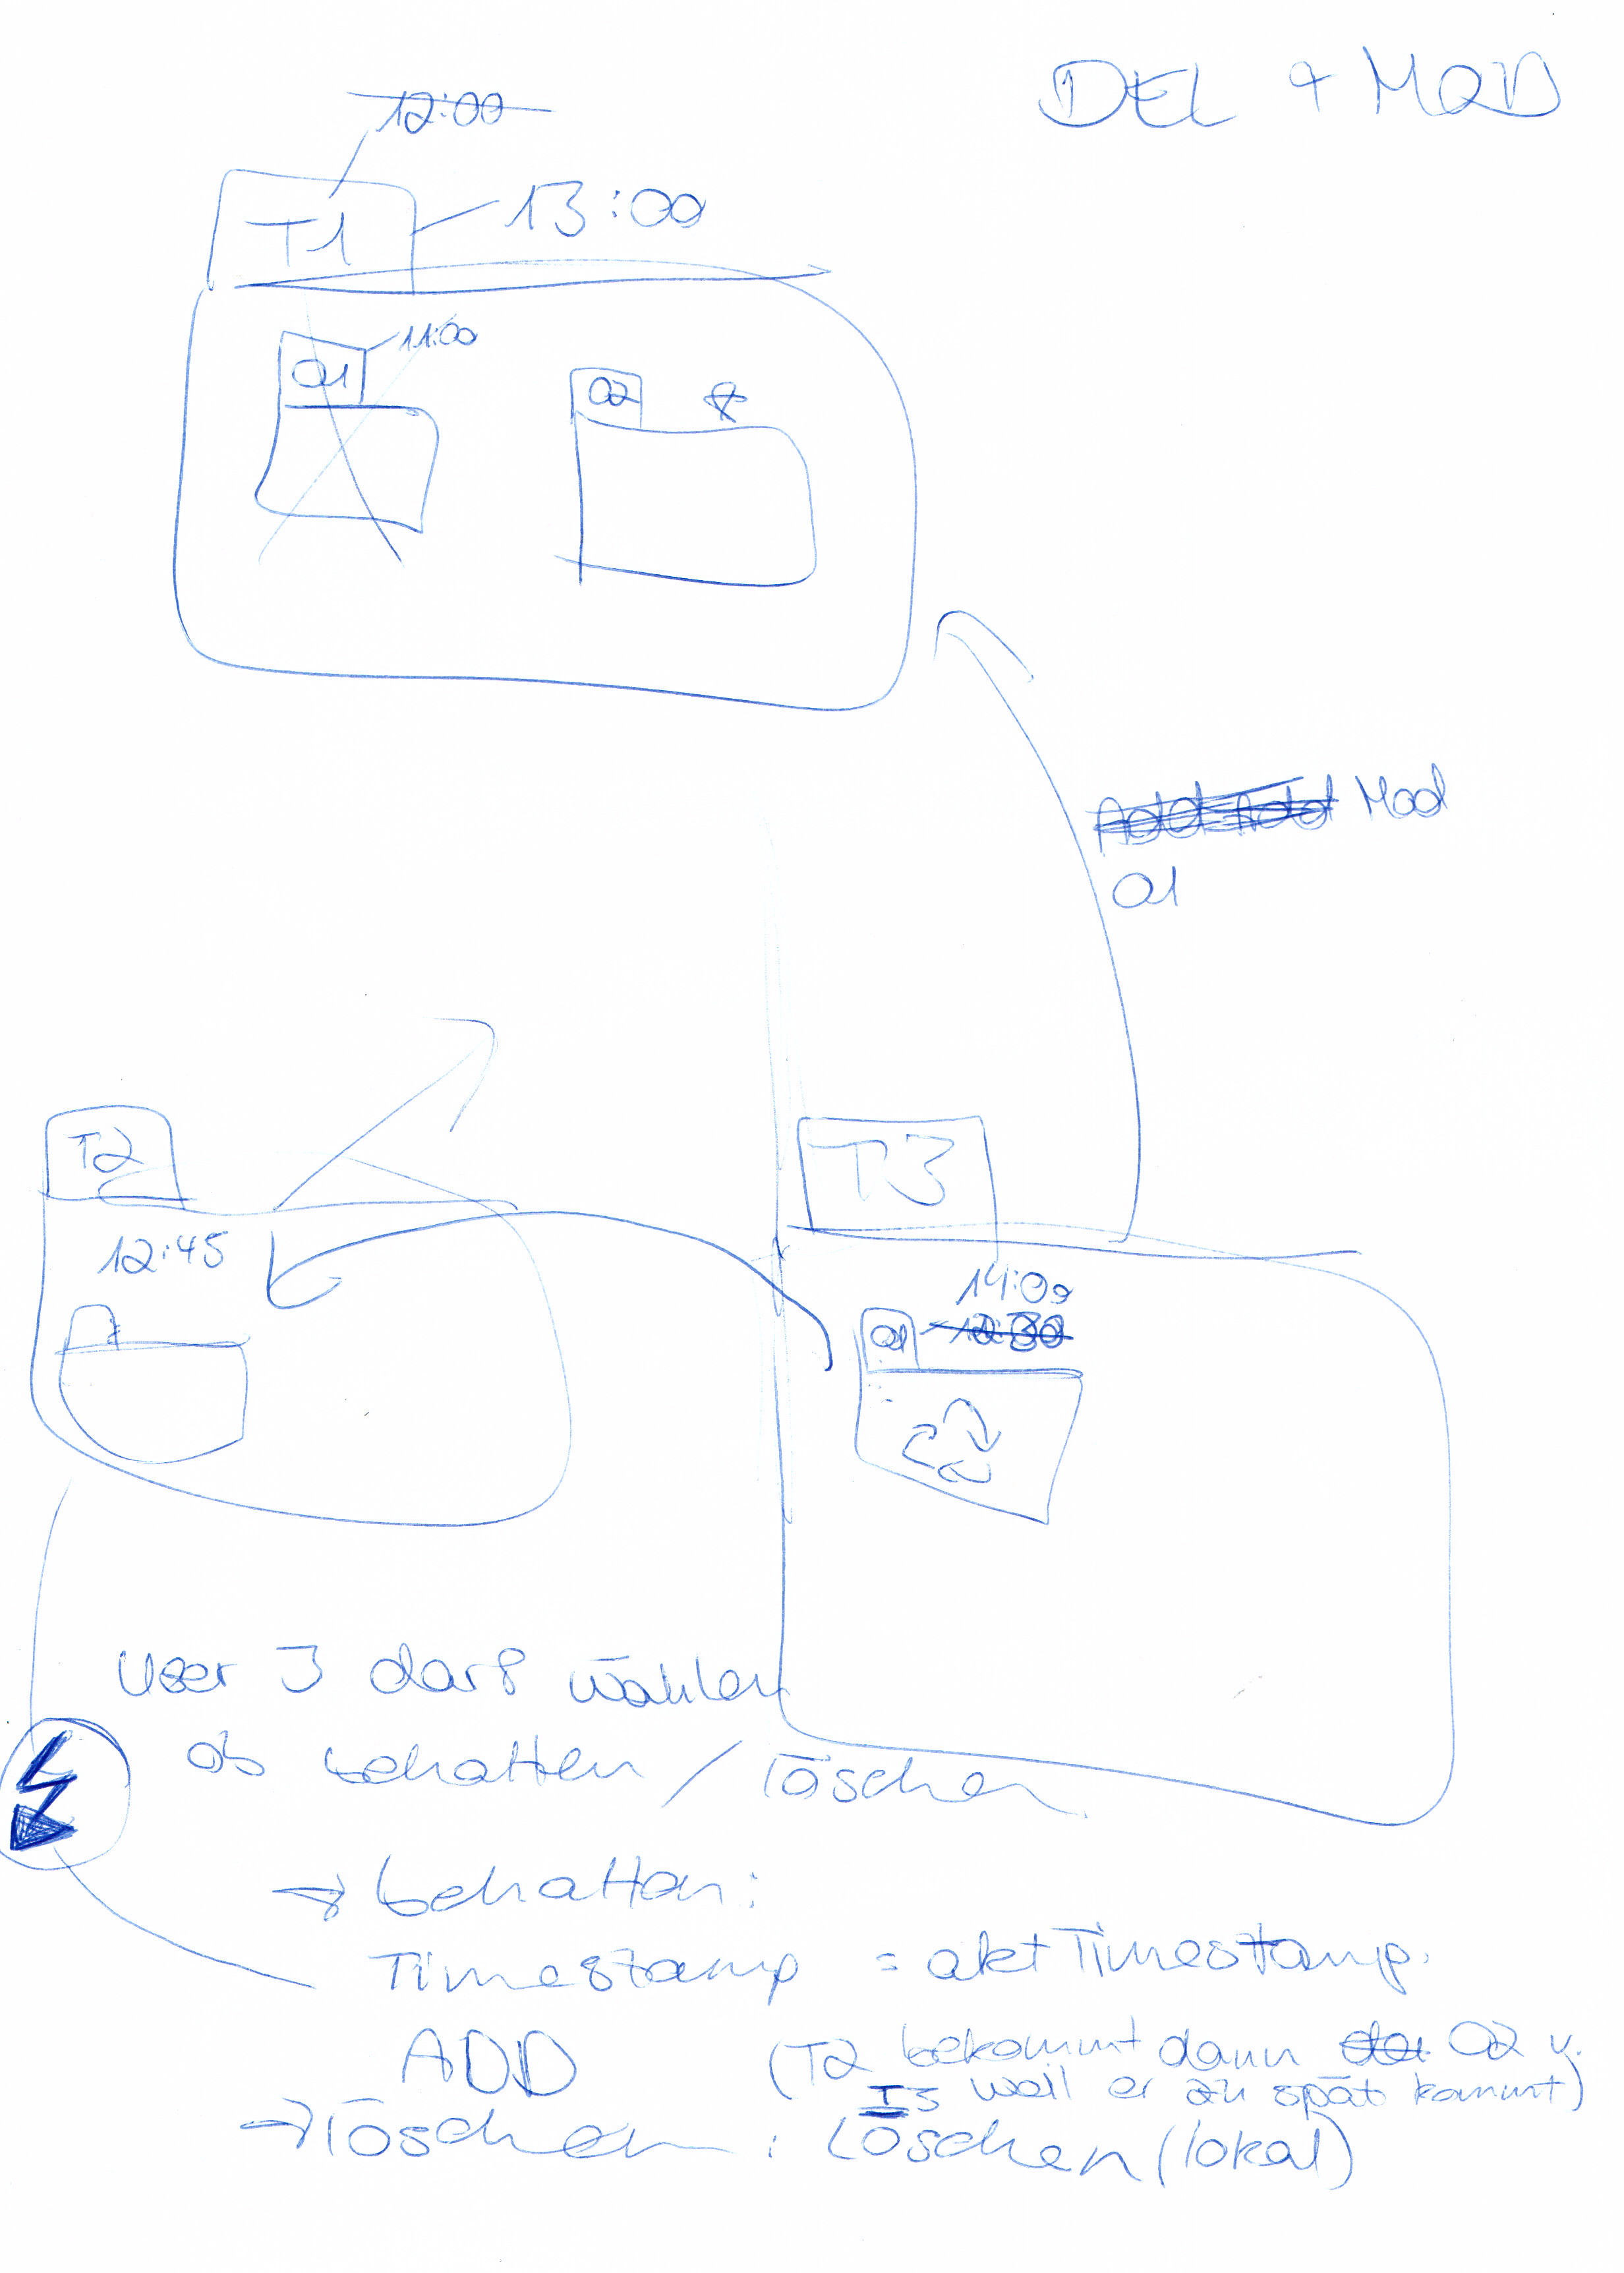 DEL + MOD
12:00
T1
13:00
O1
11:00
O2
Mod
O1
T2
12:45
T3
14:00
O1
User 3 darf wählen
ob behalten / löschen
→ behalten:
Timestamp = akt Timestamp.
ADD
(T2 bekommt dann O2 v.
T3 weil er zu spät kommt)
→ löschen : Löschen (lokal)